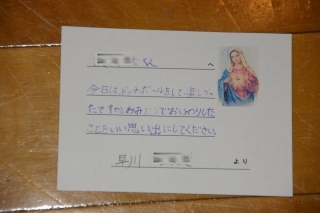 くん へ
今日は、ドッチボールをして、楽しかっ
たですかおみどうでおいのりした
ことをいい思い出にしてください
早川 より